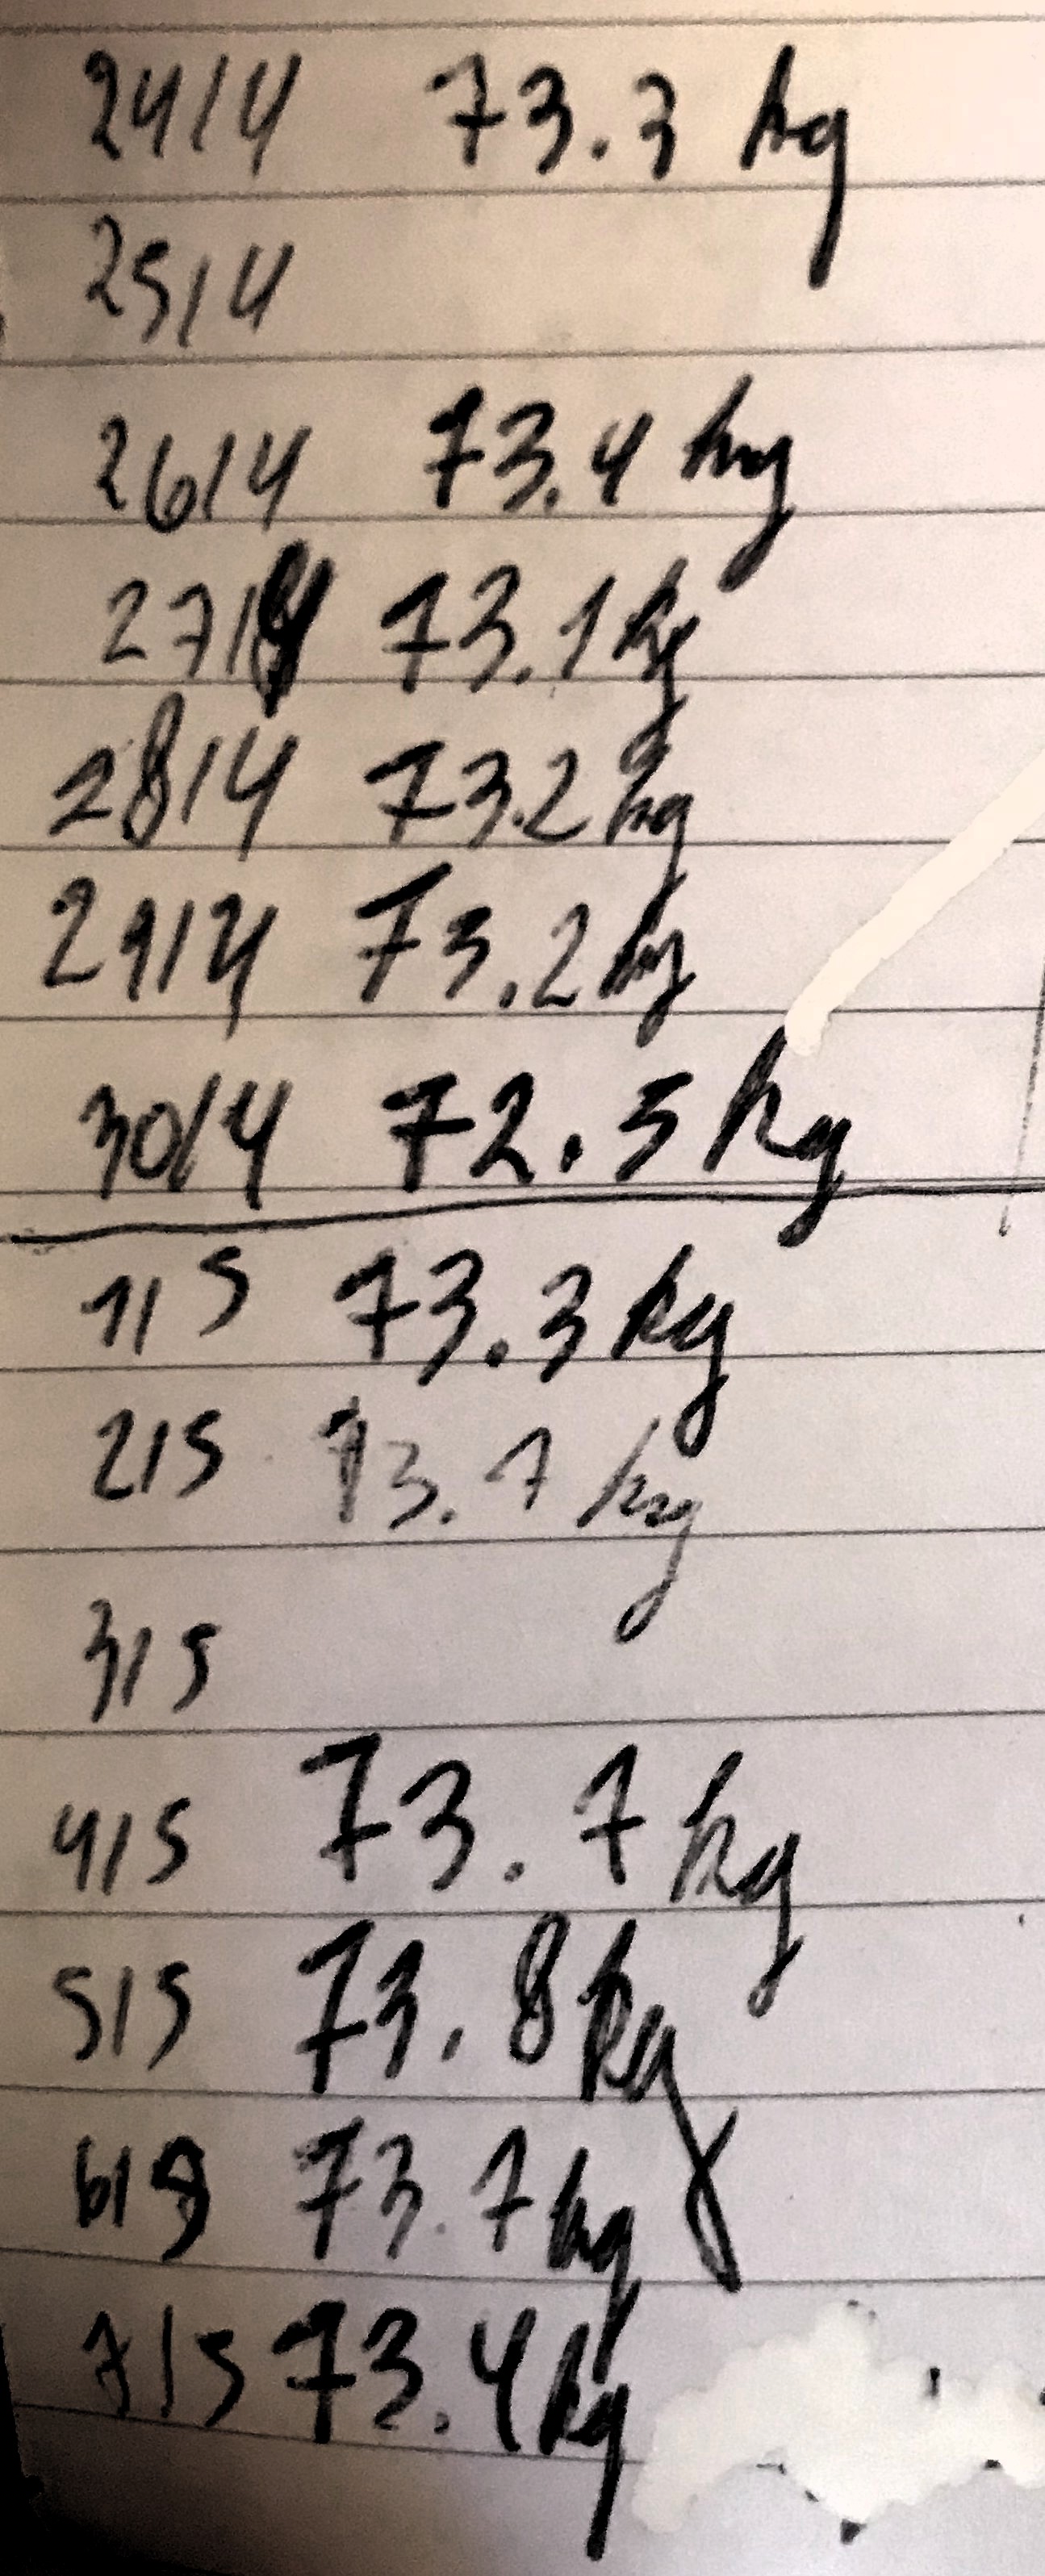 24/4 73.3 kg
25/4
26/4 73.4 kg
27/4 73.1 kg
28/4 73.2 kg
29/4 73.2 kg
30/4 72.5 kg
1/5 73.3 kg
2/5 73.7 kg
3/5
4/5 73.7 kg
5/5 73.8 kg
6/5 73.7 kg
7/5 73.4 kg